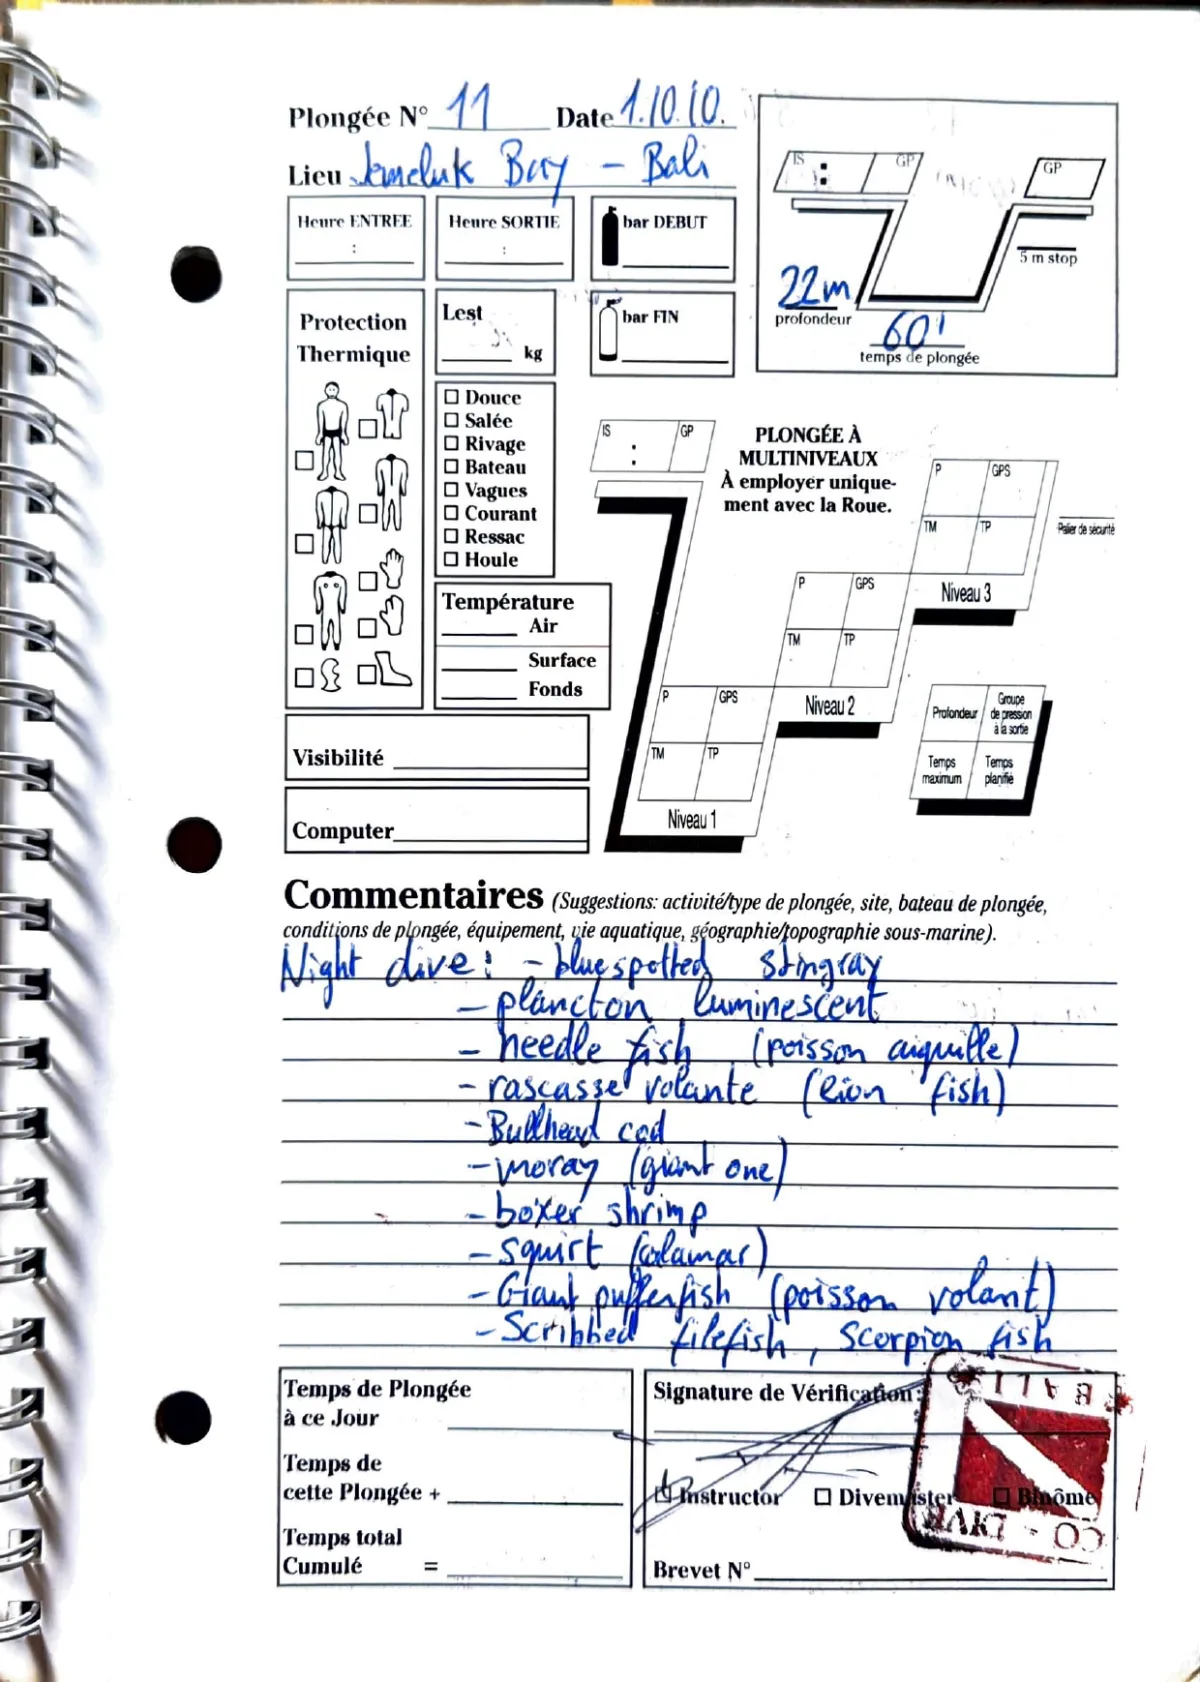 Plongée N° 11 Date 1.10.10.
Lieu Jemeluk Bay - Bali
Heure ENTREE
:
Heure SORTIE
:
bar DEBUT
bar FIN
IS : GP
GP
5 m stop
22m
profondeur
60'
temps de plongée
Protection
Thermique
Lest
kg
Douce
Salée
Rivage
Bateau
Vagues
Courant
Ressac
Houle
Température
Air
Surface
Fonds
Visibilité
Computer
IS : GP
PLONGÉE À
MULTINIVEAUX
À employer unique-
ment avec la Roue.
P GPS
TM TP
Palier de sécurité
Niveau 3
P GPS
TM TP
Niveau 2
P GPS
TM TP
Niveau 1
Profondeur
Groupe
de pression
à la sortie
Temps
maximum
Temps
planifié
Commentaires (Suggestions: activité/type de plongée, site, bateau de plongée,
conditions de plongée, équipement, vie aquatique, géographie/topographie sous-marine).
Night dive: - blue spotted stingray
- plancton luminescent
- needle fish (poisson aiguille)
- rascasse volante (lion fish)
- Bullhead cod
- moray (giant one)
- boxer shrimp
- squirt (calamar)
- Giant pufferfish (poisson volant)
- Scribbed filefish, scorpion fish
Temps de Plongée
à ce Jour
Temps de
cette Plongée +
Temps total
Cumulé =
Signature de Vérification:
Instructor Divemaster Binôme
Brevet N°
BALI
CO - DIVE